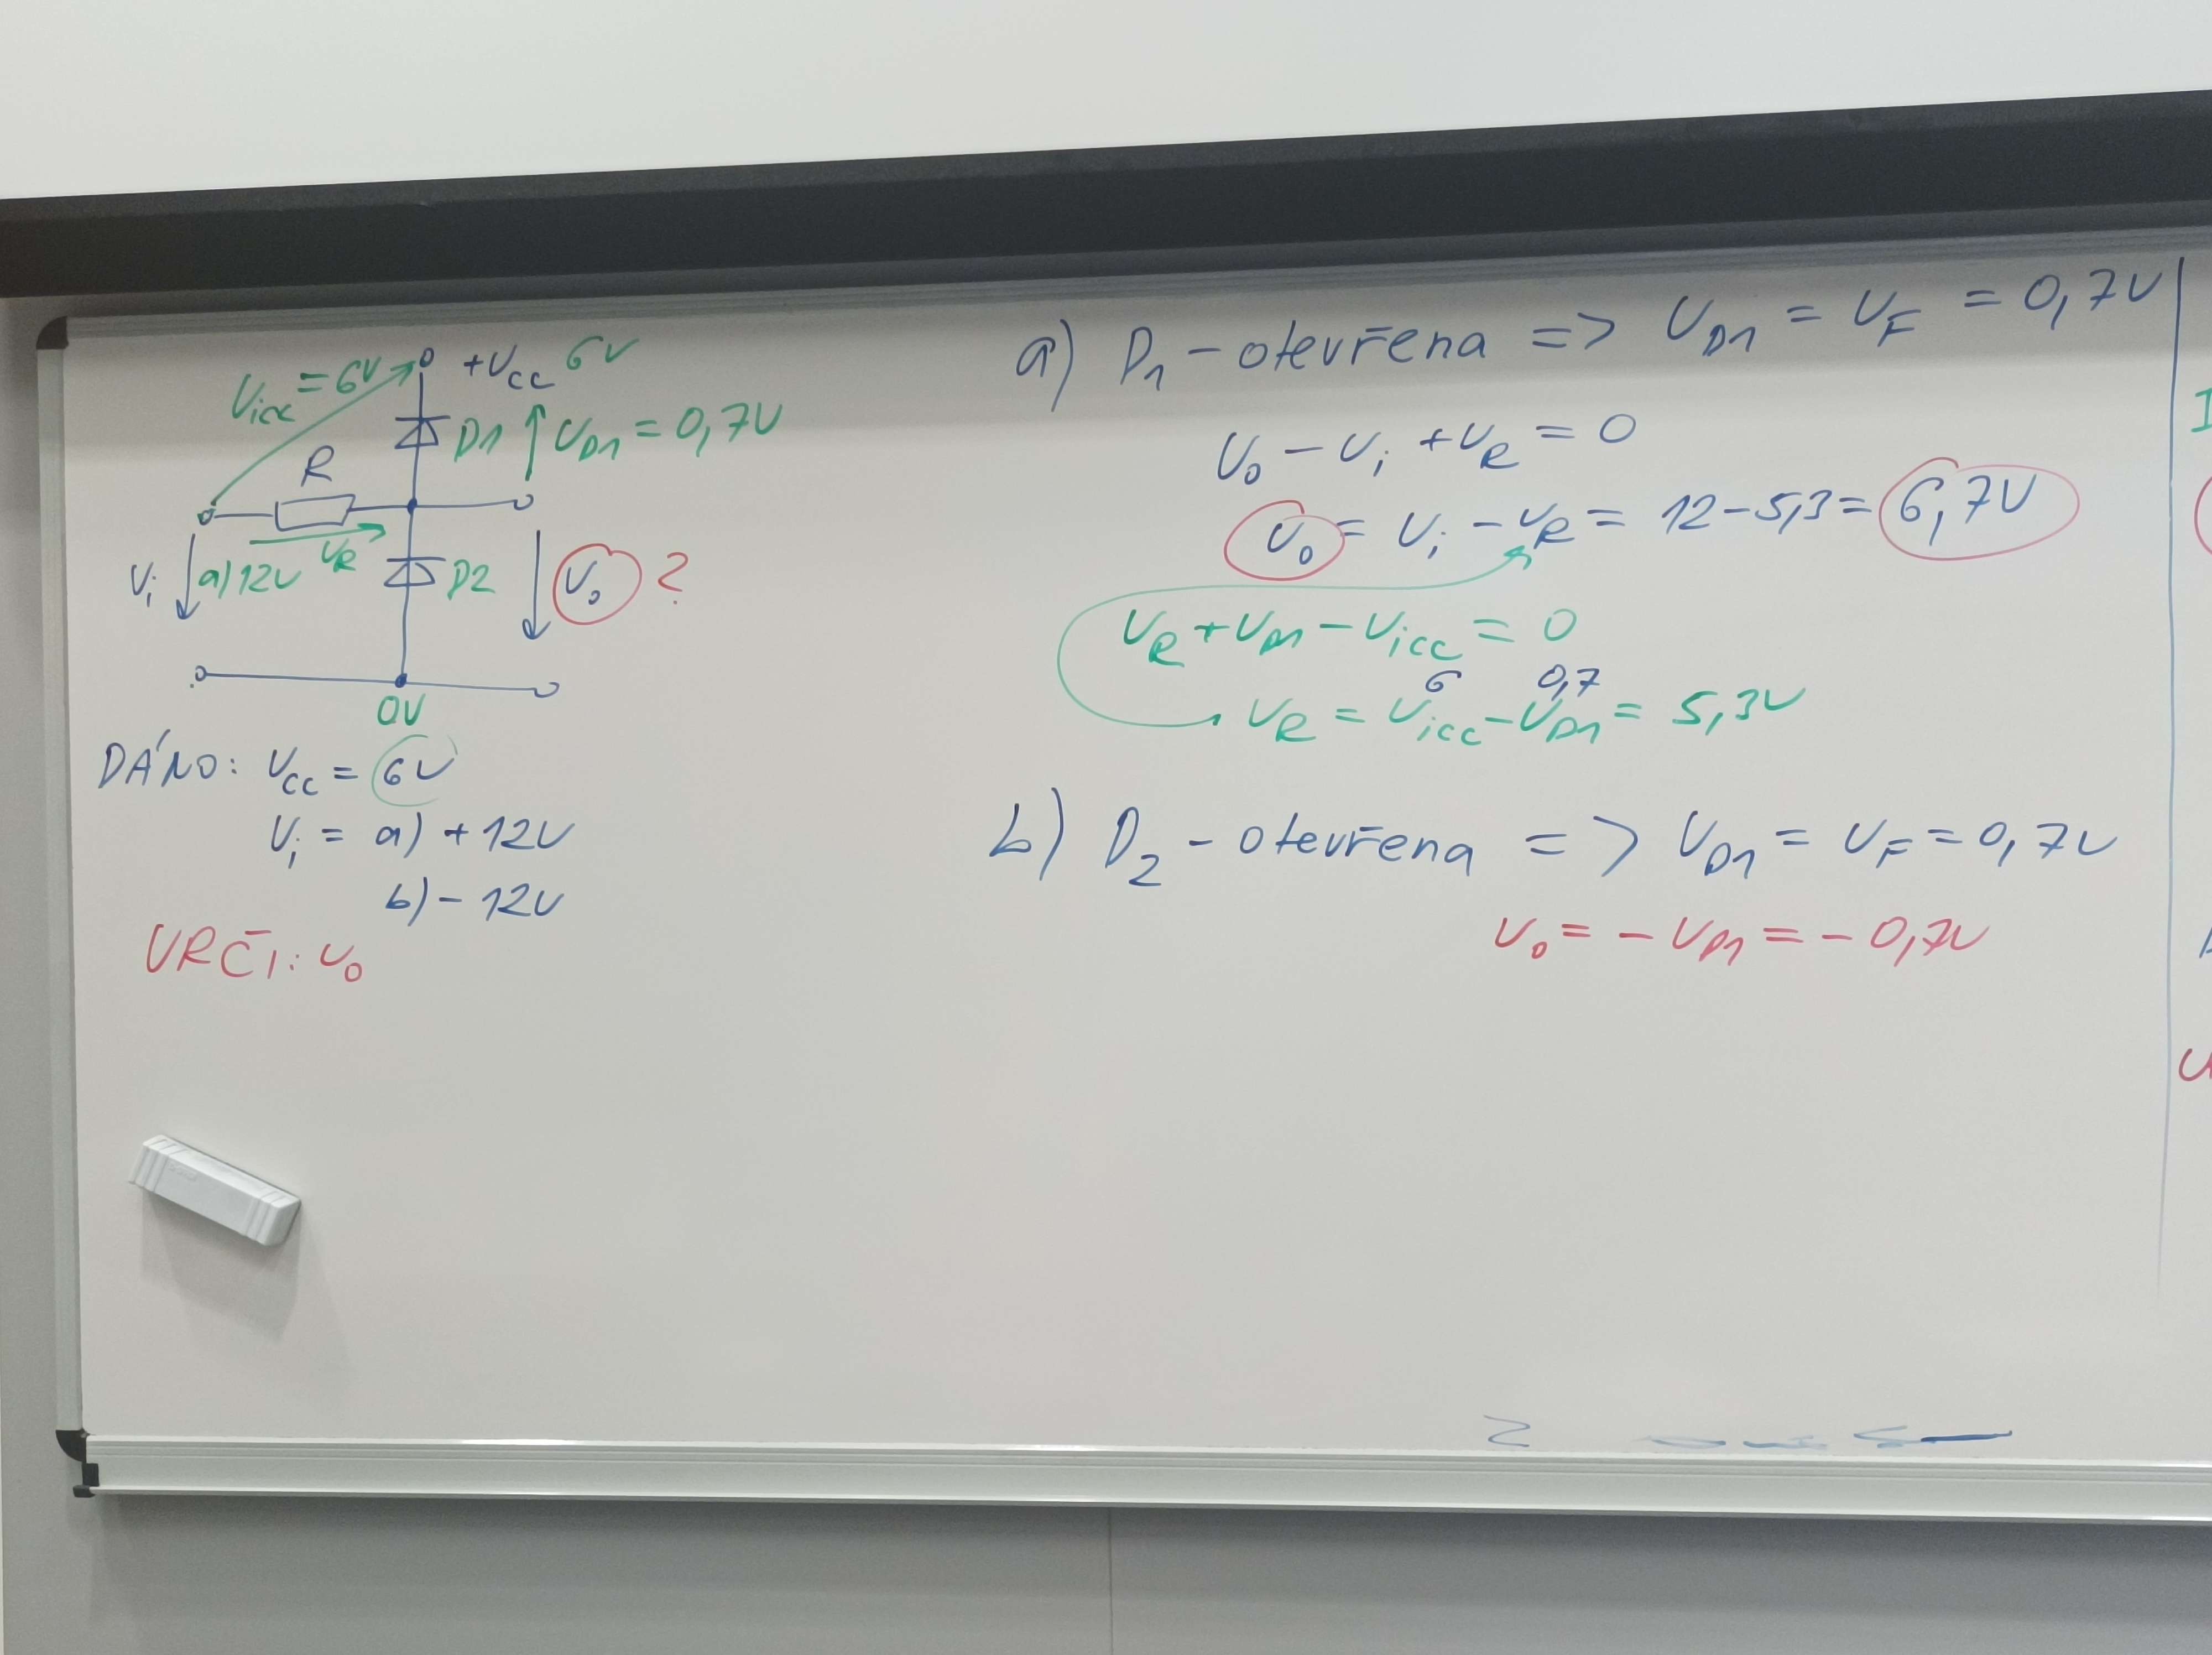 U_icc = 6V
+U_CC 6V
D1 U_D1 = 0,7V
R
U_i a) 12V U_R D2 U_o ?
0V
DÁNO: U_CC = 6V
U_i = a) + 12V
b) - 12V
URČI: U_o
a) D_1 - otevřena => U_D1 = U_F = 0,7V
U_o - U_i + U_R = 0
U_o = U_i - U_R = 12 - 5,3 = 6,7V
U_R + U_D1 - U_icc = 0
6 0,7
U_R = U_icc - U_D1 = 5,3V
b) D_2 - otevřena => U_D1 = U_F = 0,7V
U_o = - U_D1 = - 0,7V